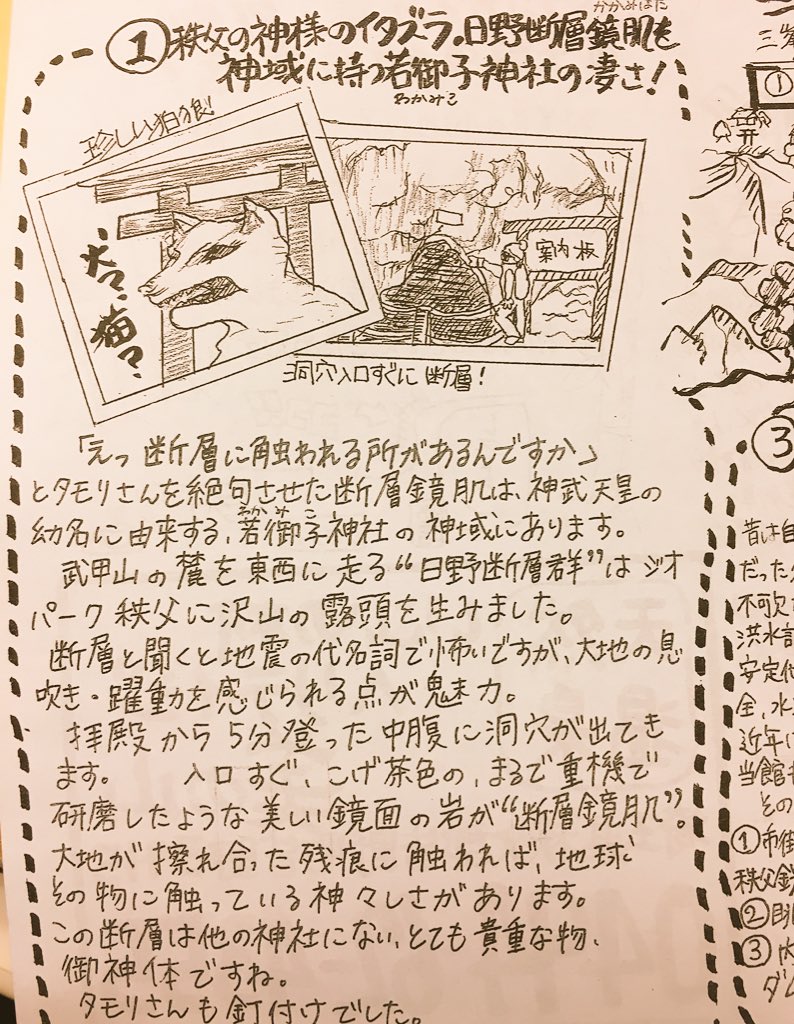 ①秩父の神様のイタズラ。日野断層鏡肌を
かかみはだ
神域に持つ若御子神社の凄さ!
わかみこ
珍しい狛狼
犬?、猫?
案内板
洞穴入口すぐに断層!
「えっ断層に触われる所があるんですか」
とタモリさんを絶句させた断層鏡肌は、神武天皇の
わかみこ
幼名に由来する、若御子神社の神域にあります。
武甲山の麓を東西に走る“日野断層群”はジオ
パーク秩父に沢山の露頭を生みました。
断層と聞くと地震の代名詞で怖いですが、大地の息
吹き・躍動を感じられる点が魅力。
拝殿から5分登った中腹に洞穴が出てき
ます。 入口すぐ、こげ茶色の、まるで重機で
研磨したような美しい鏡面の岩が“断層鏡肌”。
大地が擦れ合った残痕に触われば、地球
その物に触っている神々しさがあります。
この断層は他の神社にない、とても貴重な物、
御神体ですね。
タモリさんも釘付けでした。
①
③
昔は自
だった
不可欠
洪水
安定
金、水
近年に
当館も
その
①市街
秩父鉄
②
③内
ダム